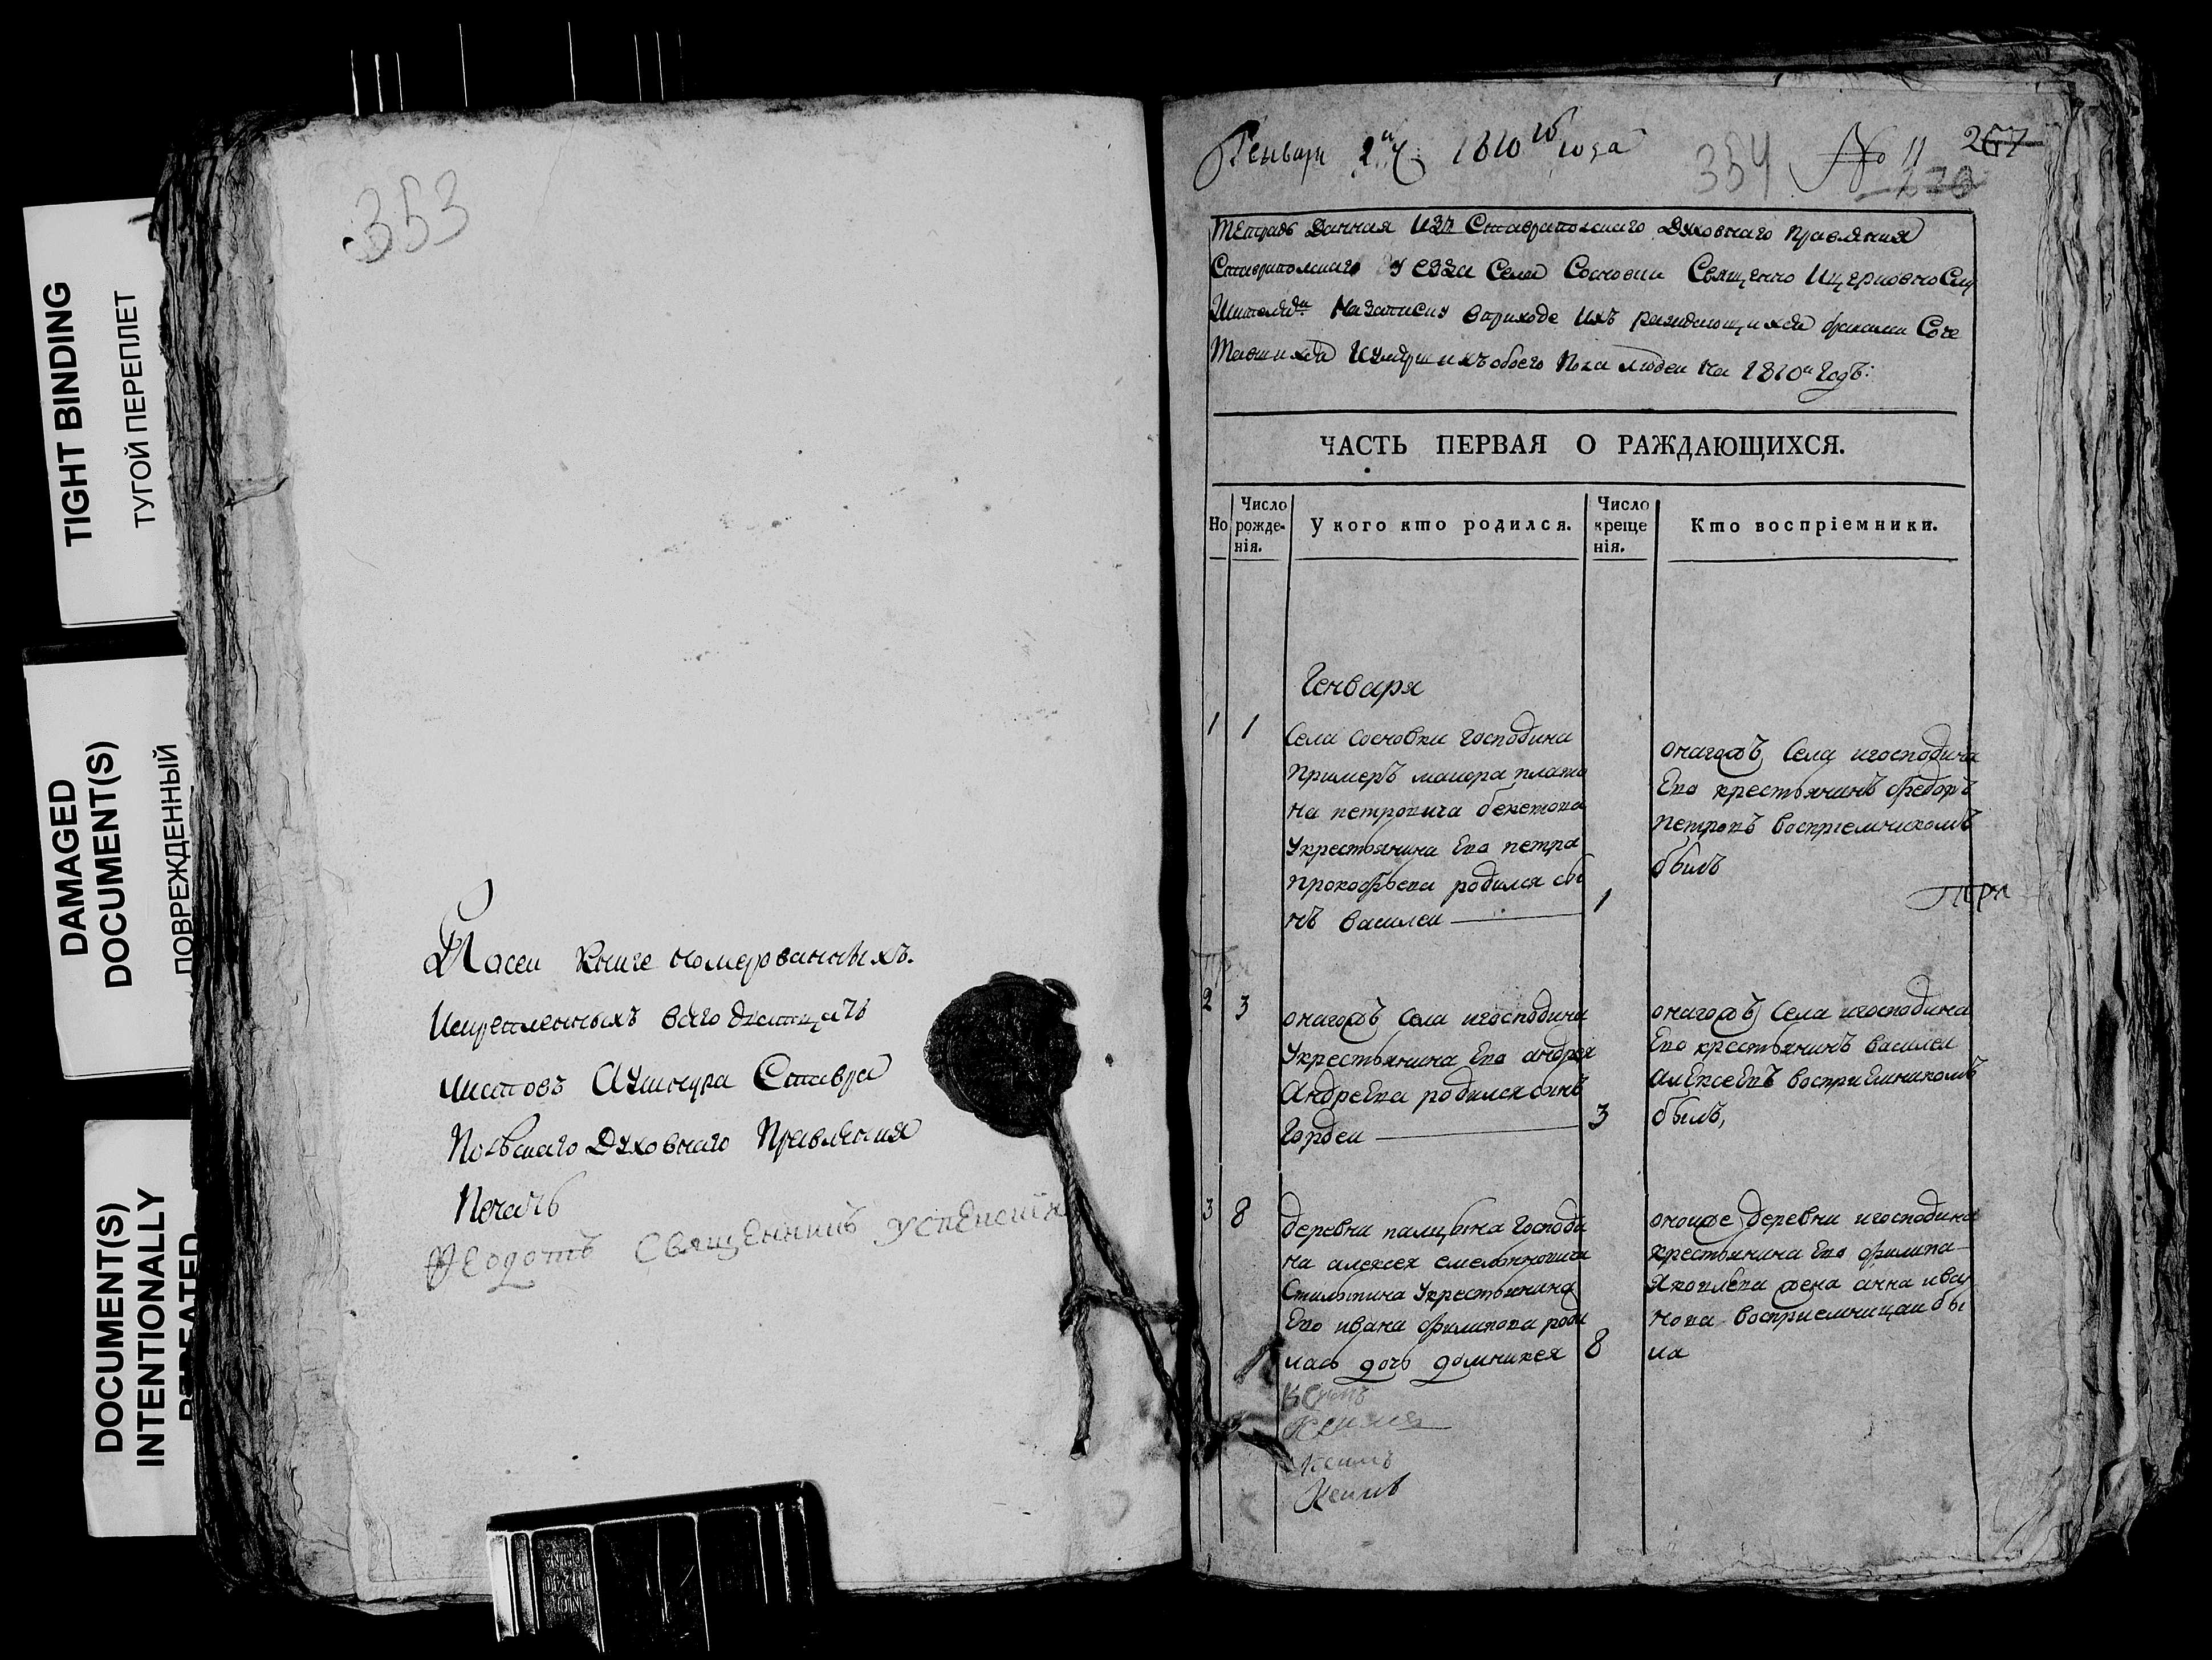 TIGHT BINDING
ТУГОЙ ПЕРЕПЛЕТ
DAMAGED
DOCUMENT(S)
ПОВРЕЖДЕННЫЙ
DOCUMENT(S)
INTENTIONALLY
REPEATED
353
Насеи книге номерованныхъ
листовъ Аушнура Ставро
Польскаго Духовнаго Правления
Печать
Феодотъ Священникъ Успенскій
Генваря 2 1810го года
354 № 11 267
Тетрадь Данная Изъ Ставропольскаго Духовнаго Правления
Ставропольскаго Уезда Села Сосновки Священно Ицерковно Слу
Жителямъ Назаписку вприходе Ихъ раждающихся браками Соче
Тавшихся Иумершихъ обоего Пола людеи На 1810й Годъ:
ЧАСТЬ ПЕРВАЯ О РАЖДАЮЩИХСЯ.
Но
Число рожде-нія.
У кого кто родился.
Число креще нія.
Кто воспріемники.
Генваря
1 1
Села сосновки господина
примеръ маиора плато
на петровича бекетова
Укрестьянина Его петра
прокофьева родился сы
нъ василеи
1
онагожъ села игосподина
Его крестьянинъ федоръ
петровъ восприемникомъ
былъ
2 3
онагожъ села игосподина
Укрестьянина Его андрея
Андреева родился сынъ
Гордеи
3
онагожъ села игосподина
Его крестьянинъ василеи
алексеевъ восприемникомъ
былъ,
3 8
деревни палицына господи
на алексея емельяновича
Укрестьянина
Его ивана филипова роди
лась дочь домникея
8
оноиже деревни игосподина
крестьянина Его филипа
Яковлева жена анна ива
нова восприемницаи бы
ла